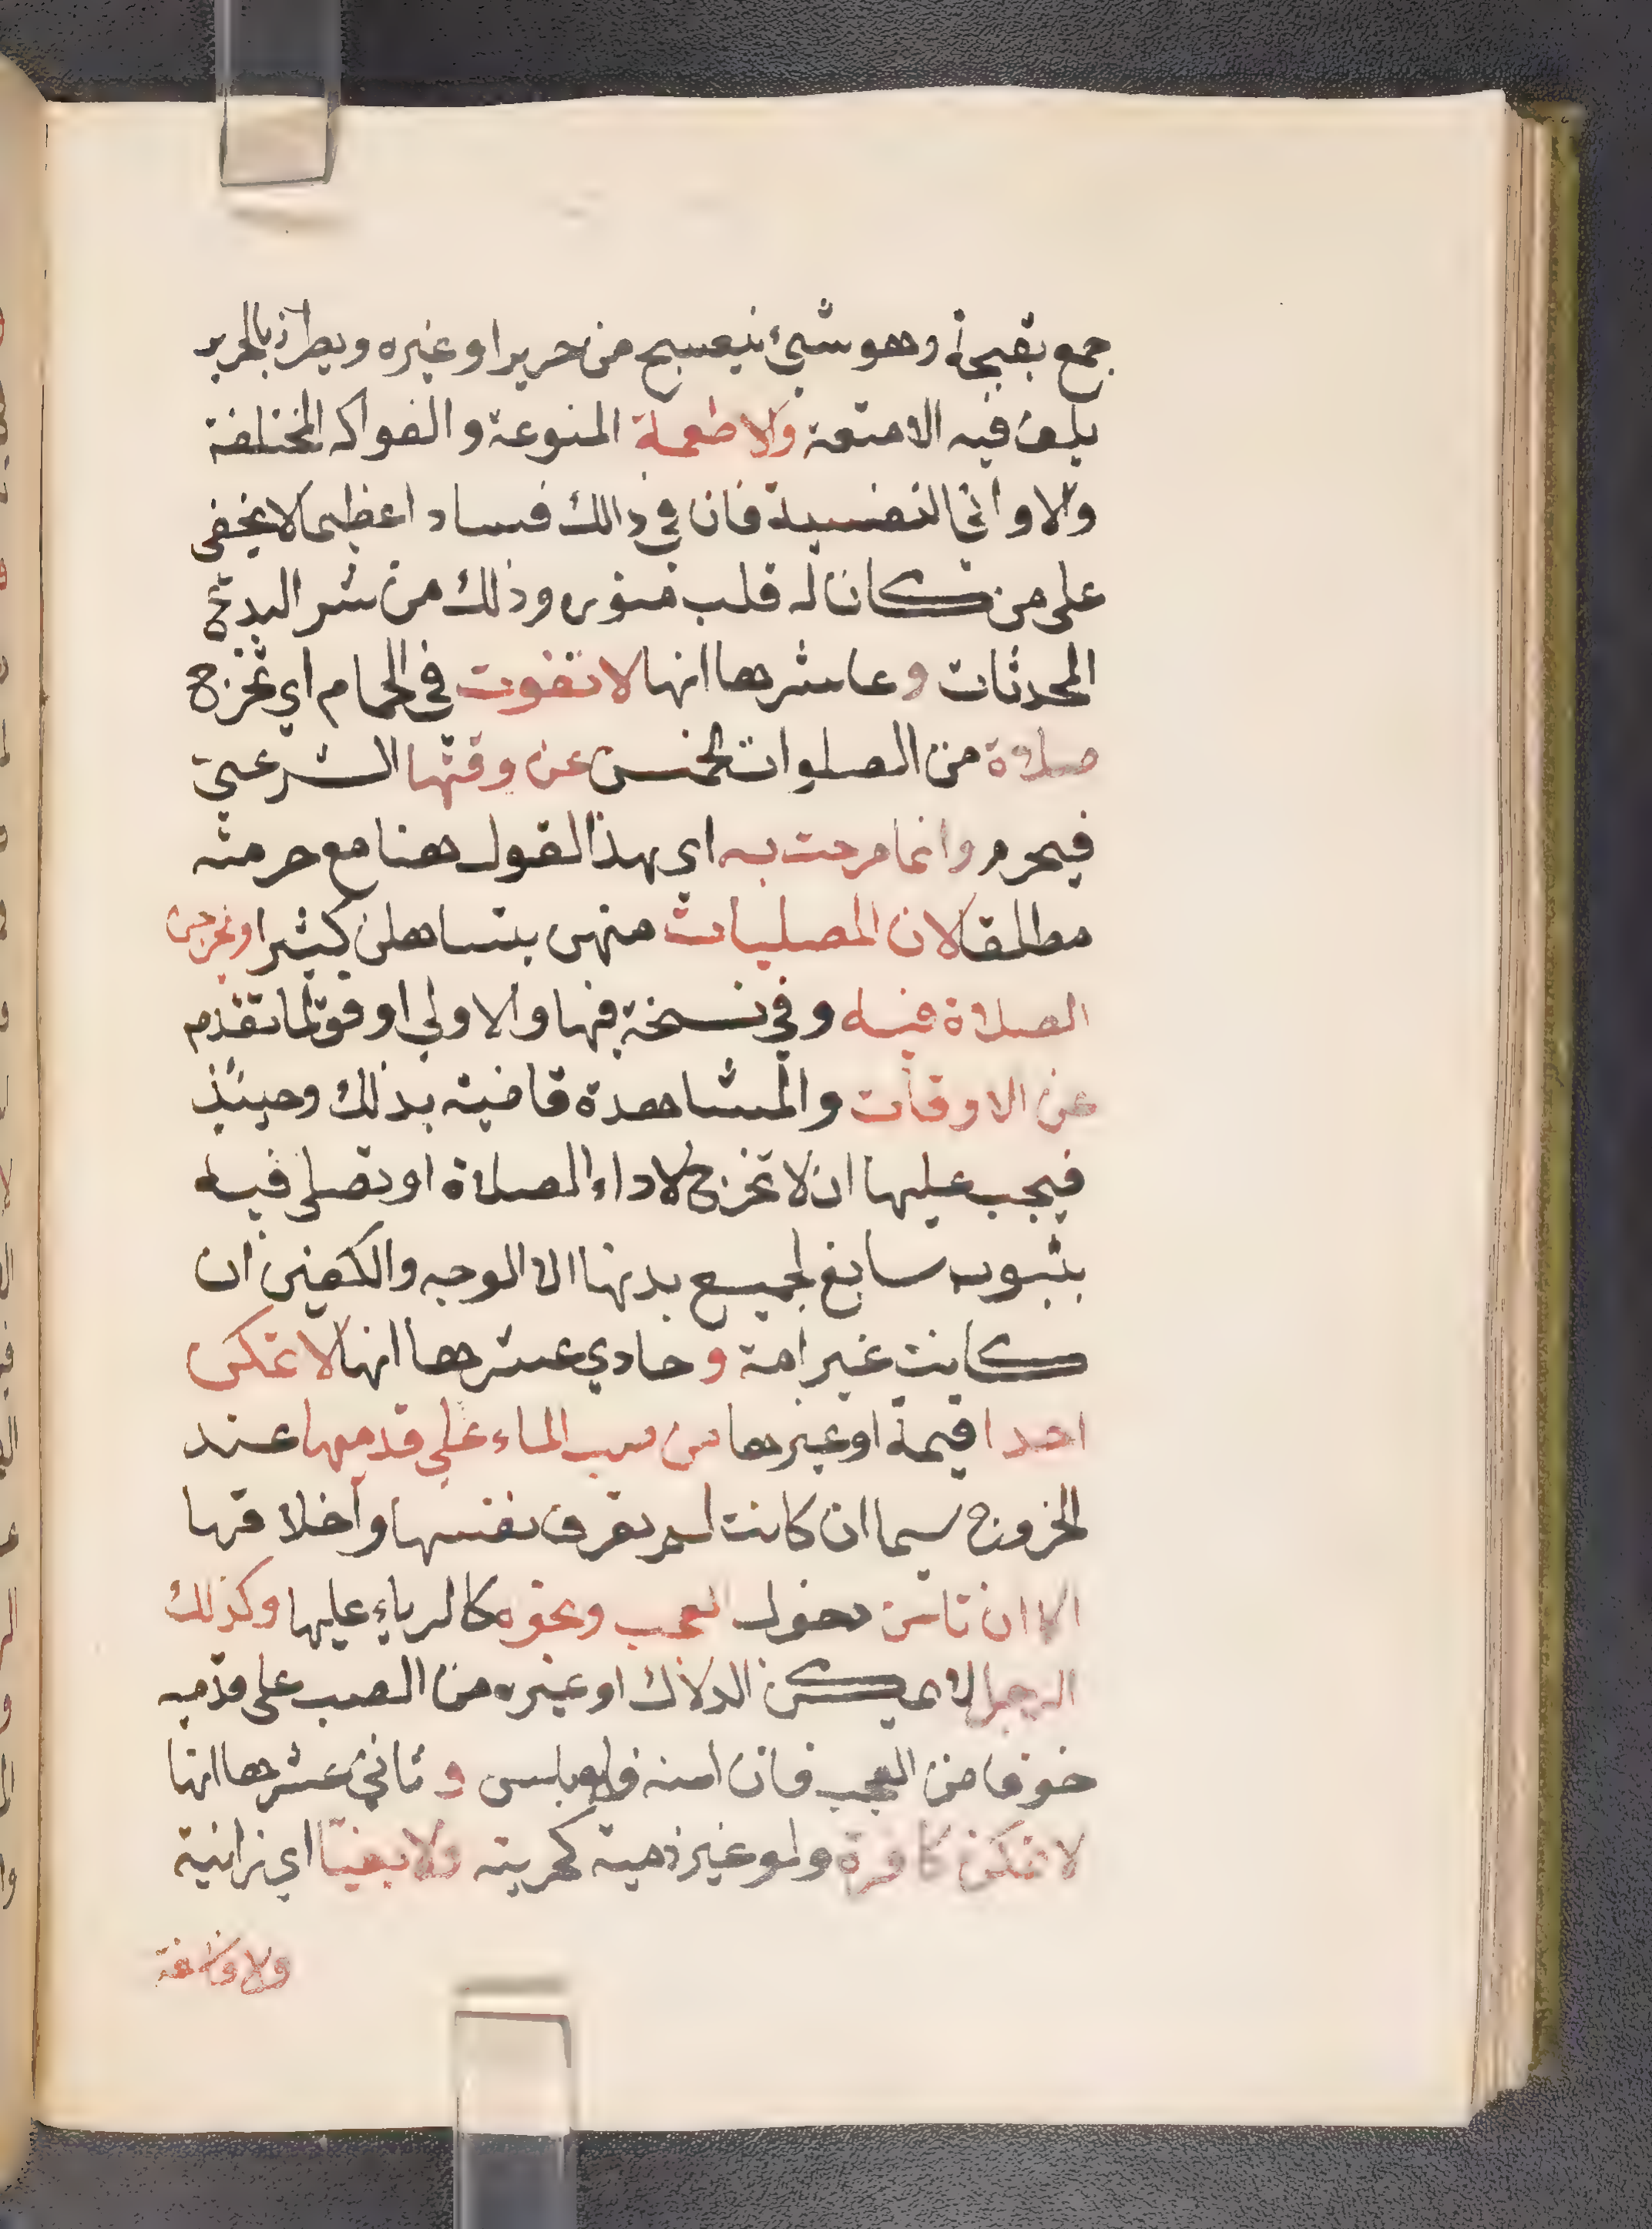 جمع بقجة وهو شيئ ينسج من حرير او غيره ويطرز بالحرير
يلف فيه الامتعة والاطعمة المنوعة والفواكه المختلفة
والاواني النفيسة فان في ذالك فسادا عظيما لا يخفى
على من كان له قلب منور وذلك من شر البدع
المحدثات وعاشرها انها لا تفوت في الحمام اي تخرج
صلاة من الصلوات الخمس عن وقتها الشرعي
فيحرم وانما صرحت به اي بهذا القول هنا مع حرمته
مطلقا لان المصليات منهن يتساهلن كثيرا ويخرجن
الصلاة فيه وفي نسخة فيها والاولى اوفق لما تقدم
عن الاوقات والمشاهدة قاضية بذلك وحينئذ
فيجب عليها ان لا تخرج لاداء الصلاة او تصلي فيه
بثوب سابغ لجميع بدنها الا الوجه والكفين ان
كانت غير امة وحادي عشرها انها لا تمكن
احدا قيمة او غيرها من صب الماء على قدميها عند
الخروج سيما ان كانت لم تعرف نفسها واخلاقها
الا ان تامن دخول العجب ونحوه كالرياء عليها وكذلك
الرجل لا يمكن الدلاك او غيره من الصب على قدميه
خوفا من العجب فان امنه فلا باس وثاني عشرها انها
لا تمكن كافرة ولو غير ذمية كحربية ولا بغيا اي زانية
ولا